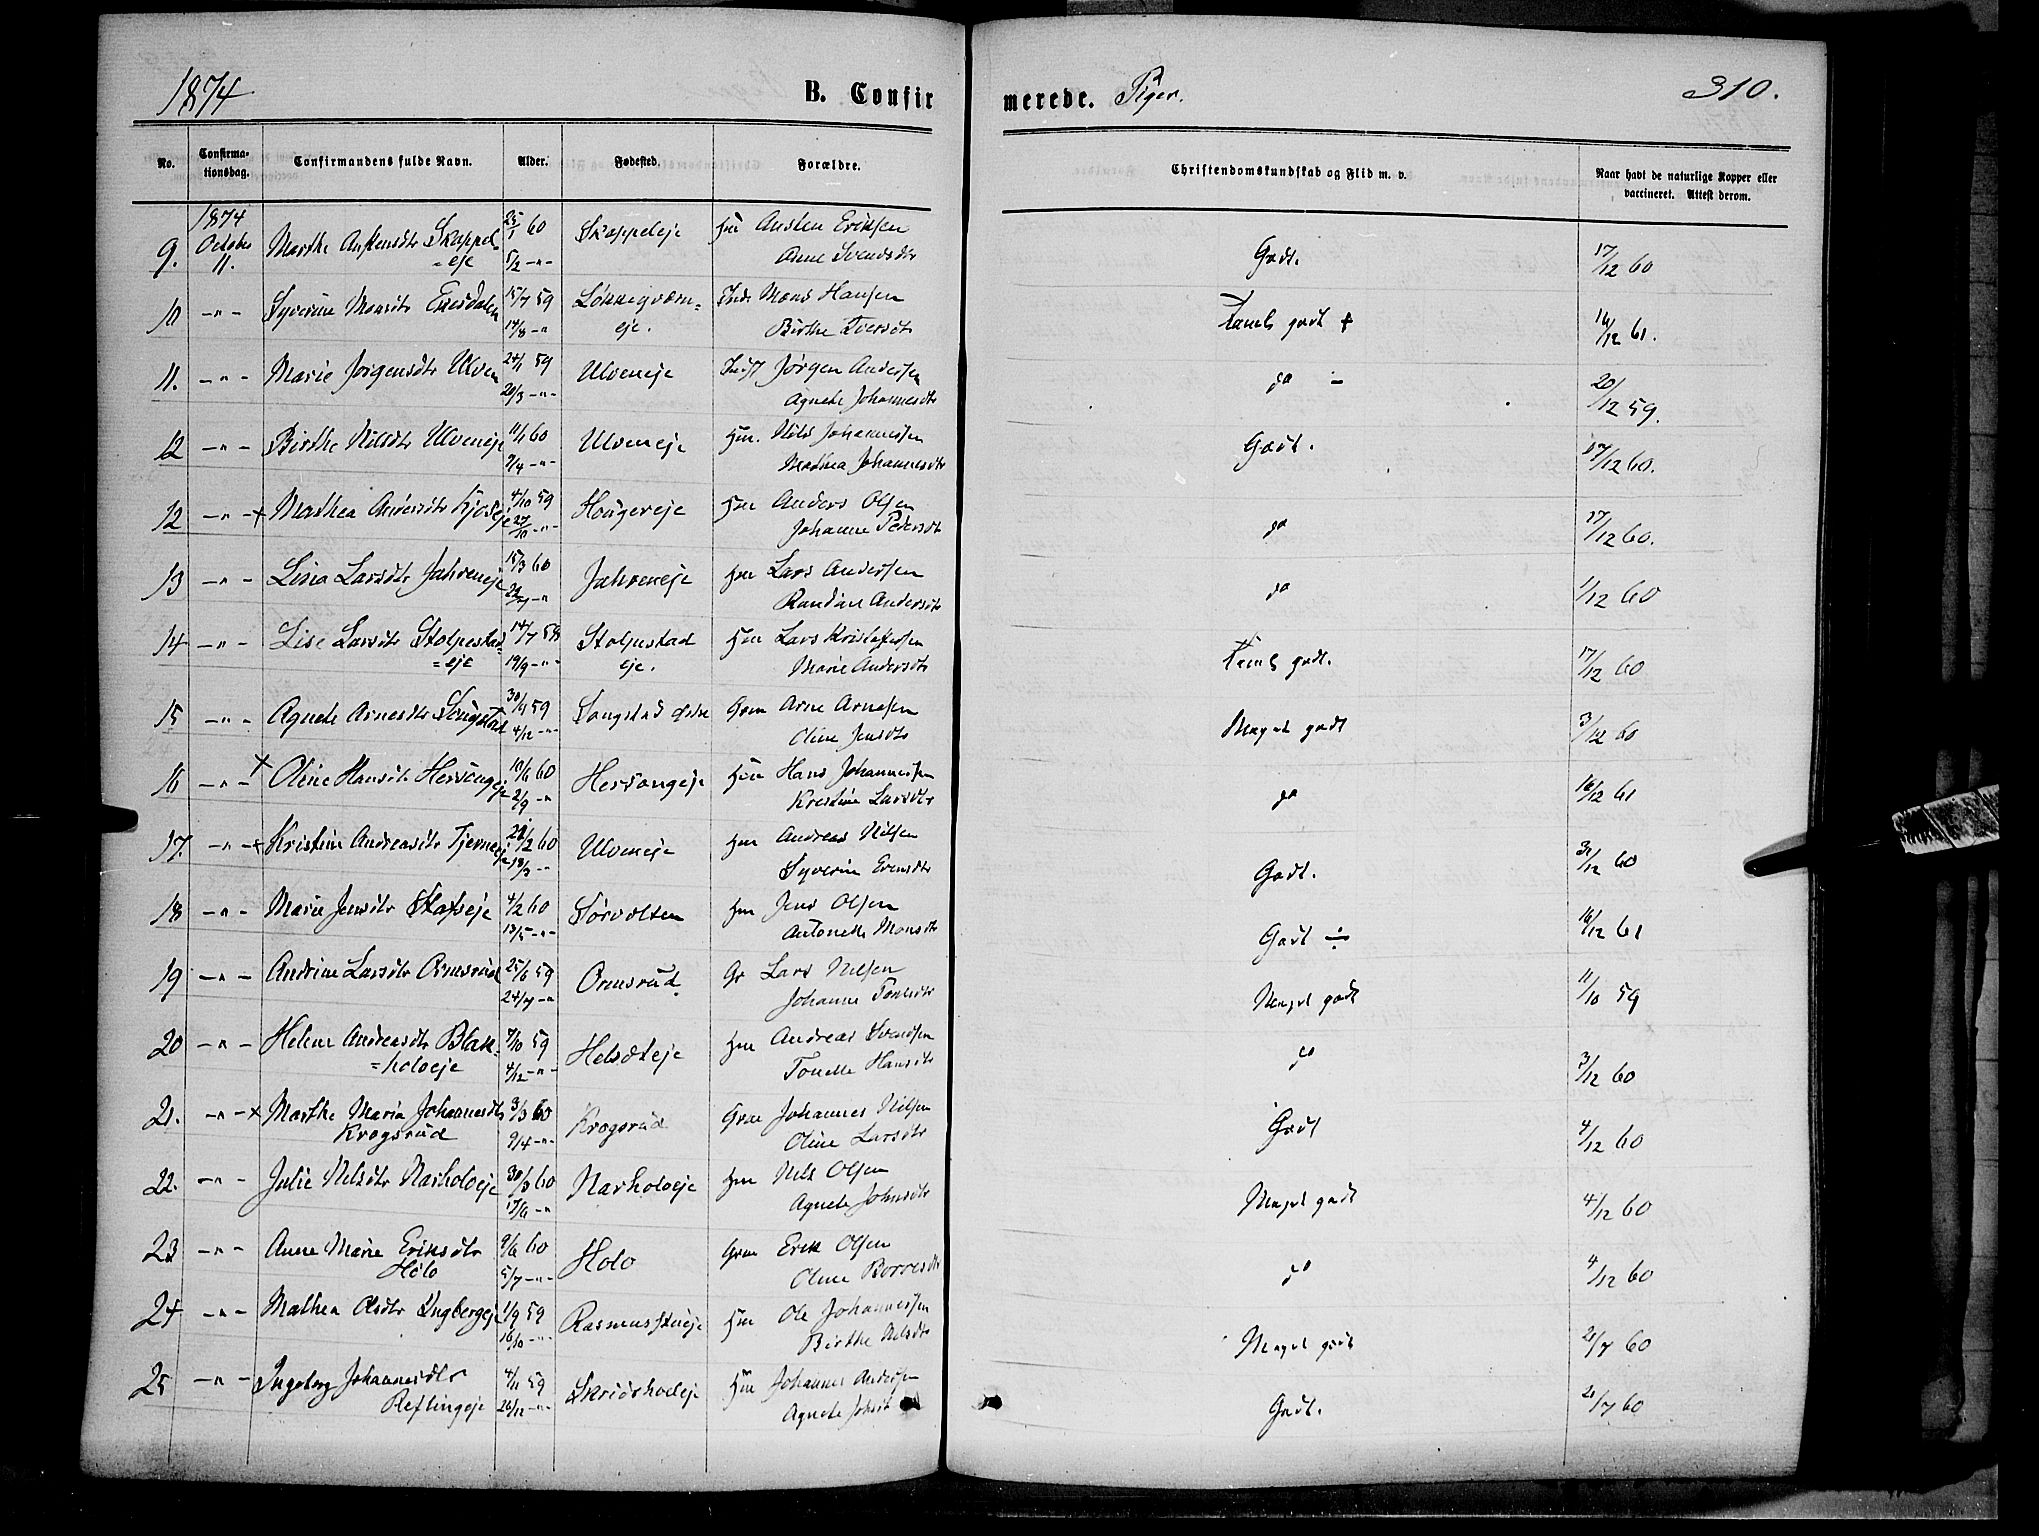 1874
B. Confirmerede. Piger.
310.
No. Confirmationsdag. Confirmandens fulde Navn. Alder. Fødested. Forældre. Christendomskundskab og Flid m. v. Naar havt de naturlige Kopper eller vaccineret. Attest derom.
1874
9. October 11. Marthe Austensdtr Skappel= 25/1 60 Skappeleje Hm Austen Eriksen Godt. 17/12 60
=eje 5/2 -"- Anne Svendsdtr
10 -"- Syverine Monsdtr 15/7 59 Mons Hansen Taml godt + 16/12 61.
14/8 -" eje. Birthe Iversdtr
11. -"- Marie Jørgensdtr Ulven 24/1 59 Ulveneje Jørgen Andersen do - 20/12 59.
20/3 -"- Agnete Johannesdtr
12 -"- Birthe Nilsdtr Ulveneje 11/1 60 Ulveneje Hm. Nils Johannessen Godt. 17/12 60.
9/4 -"- Mathea Johannesdtr
12 -"- + Mathea Andersdtr Kjoseje 4/10 59 Hougereje Hm Anders Olsen do 17/12 60.
27/10 -"- Johanne Pedersdtr
13 -"- Lisa Larsdtr Jahreneje 15/3 60 Jahreneje Hm Lars Andersen do 1/12 60
Randine Andersdtr
14 -"- Lise Larsdtr Stolpestad= 14/7 58 Stolpestad Hm Lars Kristofersen Taml godt. 17/12 60
=eje 19/9 -"- eje. Marie Andersdtr
15 -"- Agnete Arnesdtr Sougstad 59 Sougstad østre Grm Arne Arnesen Meget godt 3/12 60
4/12 -"- Oline Jensdtr
16 -"- + Oline Hansdtr Hersougeje 10/6 60 Hersougeje Hm Hans Johannessen do 16/12 61
2/9 -" Kristine Larsdtr
17. -"- + Kristine Andreasdtr Tjerneje 60 Ulveneje Hm Andreas Nilsen Godt. 60
18/3 -" Syverine Evensdtr
18 -"- Marie Jensdtr 4/2 60 Hm Jens Olsen Godt ÷ 16/12 61
13/5 -"- Antonette Monsdtr
19 -"- Andrine Larsdtr Ormsrud 25/6 59 Ormsrud. Gr Lars Nilsen Meget godt 11/10 59
24/7 -" Johanne
20 -"- Helene Andreasdtr Blak= 59 Helsdteje Hm Andreas Svendsen do 3/12 60
=holoeje 4/12 -"- Tonette Hansdtr
21. -"- + Marthe Maria Johannesdtr 3/3 60 Krogsrud Grm Johannes Nilsen Godt 4/12 60
Krogsrud 9/4 -"- Oline Larsdtr
22. -"- Julie Nilsdtr Narholoeje 30/3 60 Narholoeje Hm Nils Olsen Meget godt 4/12 60
17/6 -" Agnete Johnsdtr
23 -"- Anne Marie Eriksdtr 9/6 60 Holo Grm Erik Olsen do 4/12 60
Holo 5/7 -"- Oline
24 -"- Mathea Olsdtr Engbergeje 1/9 59 Rasmusstueje Hm Ole Johannessen Meget godt 2/7 60
16/10 -"- Birthe Nilsdtr
25 -"- Ingeborg Johannesdtr 4/11 59 Hm Johannes Andersen Godt. 2/7 60
Reflingeje 26/12 -"- Agnete